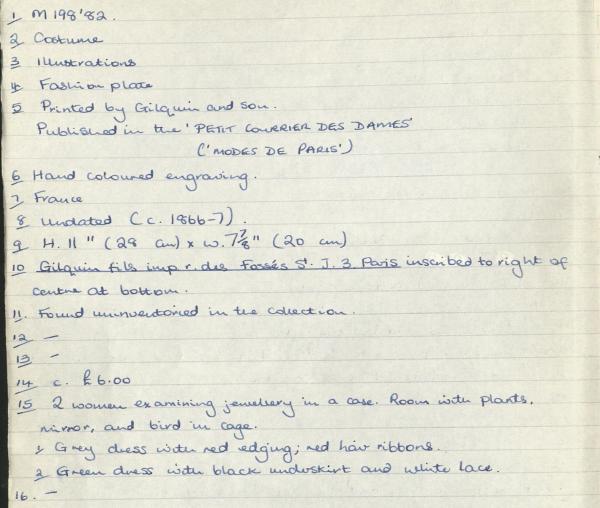 1 M 198'82.
2 Costume
3 Illustrations
4 Fashion plate
5 Printed by Gilquin and son.
Published in the 'PETIT COURRIER DES DAMES'
('MODES DE PARIS')
6 Hand coloured engraving.
7 France
8 Undated (c. 1866-7).
9 H. 11" (28 cm) x w. 7 7/8" (20 cm)
10 Gilquin fils imp r. des Fossés St. J. 3. Paris inscribed to right of
centre at bottom.
11. Found uninventoried in the collection.
12 —
13 —
14 c. £6.00
15 2 women examining jewellery in a case. Room with plants,
mirror, and bird in cage.
1 Grey dress with red edging; red hair ribbons.
2 Green dress with black underskirt and white lace.
16. —